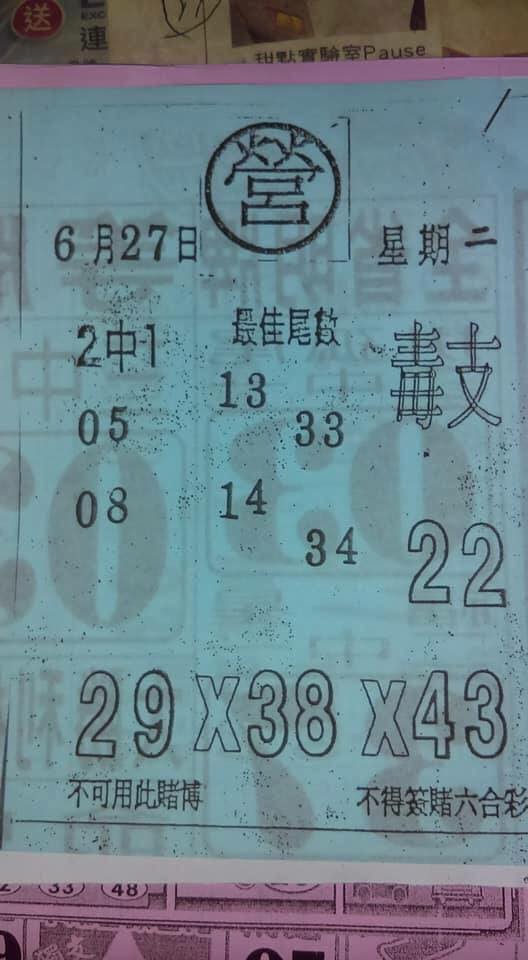 送
連
甜點實驗室Pause
營
6月27日 星期二
2中1 最佳尾數 毒支
05 13 33
08 14 34 22
29X38X43
不可用此賭博 不得簽賭六合彩
33 48